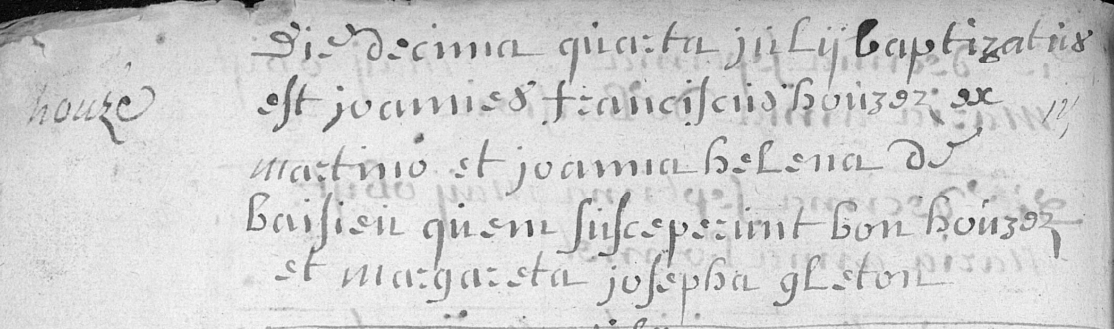 Die decima quarta julij baptizatus
houze
est joannes franciscus houzez ex
martino et joanna helena de
baisieu quem susceperunt bon houzez
et margareta josepha gleton